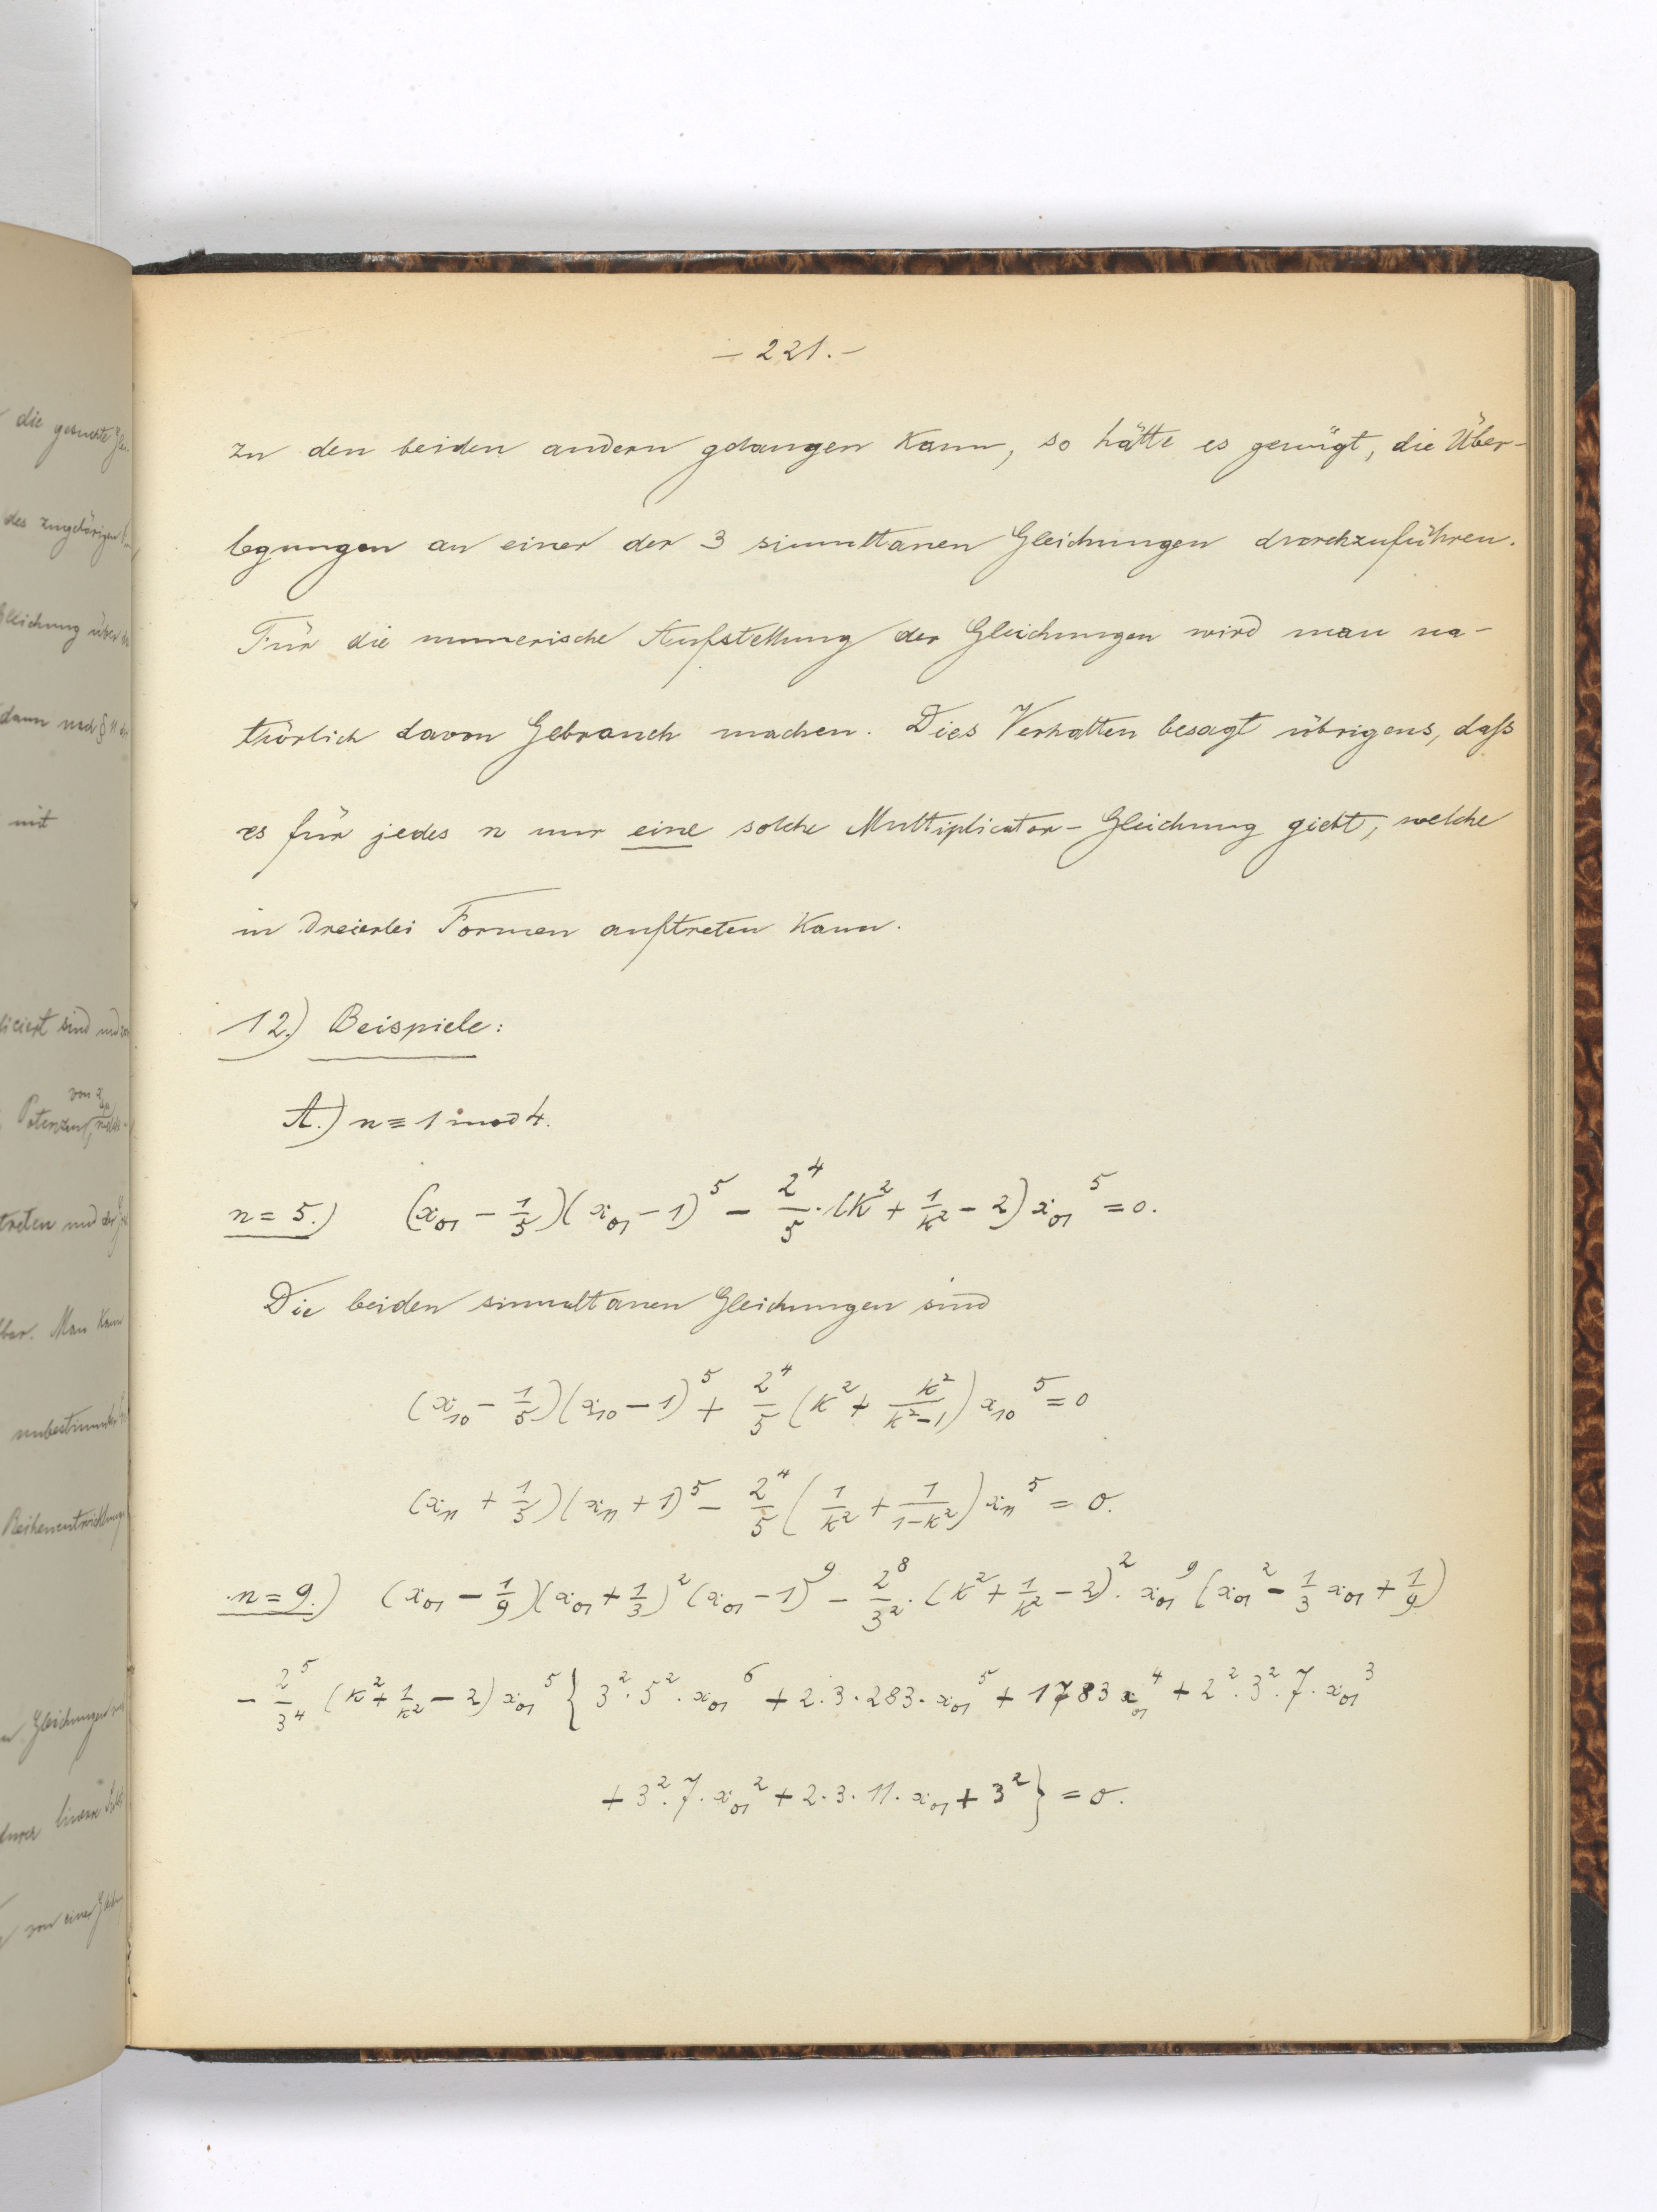 die gesuchte Glei-
des zugehörigen
Gleichung über
dann nach § 11
mit
sind und
von
Potenzen
treten und der
Man kann
unbestimmten
Reihenentwicklung
Gleichungen
linearen
von einer
– 221. –
zu den beiden andern gelangen kann, so hätte es genügt, die Über-
legungen an einer der 3 simultanen Gleichungen durchzuführen.
Für die numerische Aufstellung der Gleichungen wird man na-
türlich davon Gebrauch machen. Dies Verhalten besagt übrigens, daß
es für jedes n nur eine solche Multiplicator-Gleichung giebt, welche
in dreierlei Formen auftreten kann.
12.) Beispiele:
A.) n ≡ 1 mod 4.
n = 5.) (x₀₁ − 1/5)(x₀₁ − 1)⁵ − 2⁴/5 · (k² + 1/k² − 2) x₀₁⁵ = 0.
Die beiden simultanen Gleichungen sind
(x₁₀ − 1/5)(x₁₀ − 1)⁵ + 2⁴/5 (k² + k²/(k²−1)) x₁₀⁵ = 0
(x₁₁ + 1/5)(x₁₁ + 1)⁵ − 2⁴/5 (1/k² + 1/(1−k²)) x₁₁⁵ = 0.
n = 9.) (x₀₁ − 1/9)(x₀₁ + 1/3)² (x₀₁ − 1)⁹ − 2⁸/3² · (k² + 1/k² − 2)² · x₀₁⁹ (x₀₁² − 1/3 x₀₁ + 1/9)
− 2⁵/3⁴ (k² + 1/k² − 2) x₀₁⁵ { 3² · 5² · x₀₁⁶ + 2 · 3 · 283 · x₀₁⁵ + 1783 x₀₁⁴ + 2² · 3² · 7 · x₀₁³
+ 3² · 7 · x₀₁² + 2 · 3 · 11 · x₀₁ + 3² } = 0.